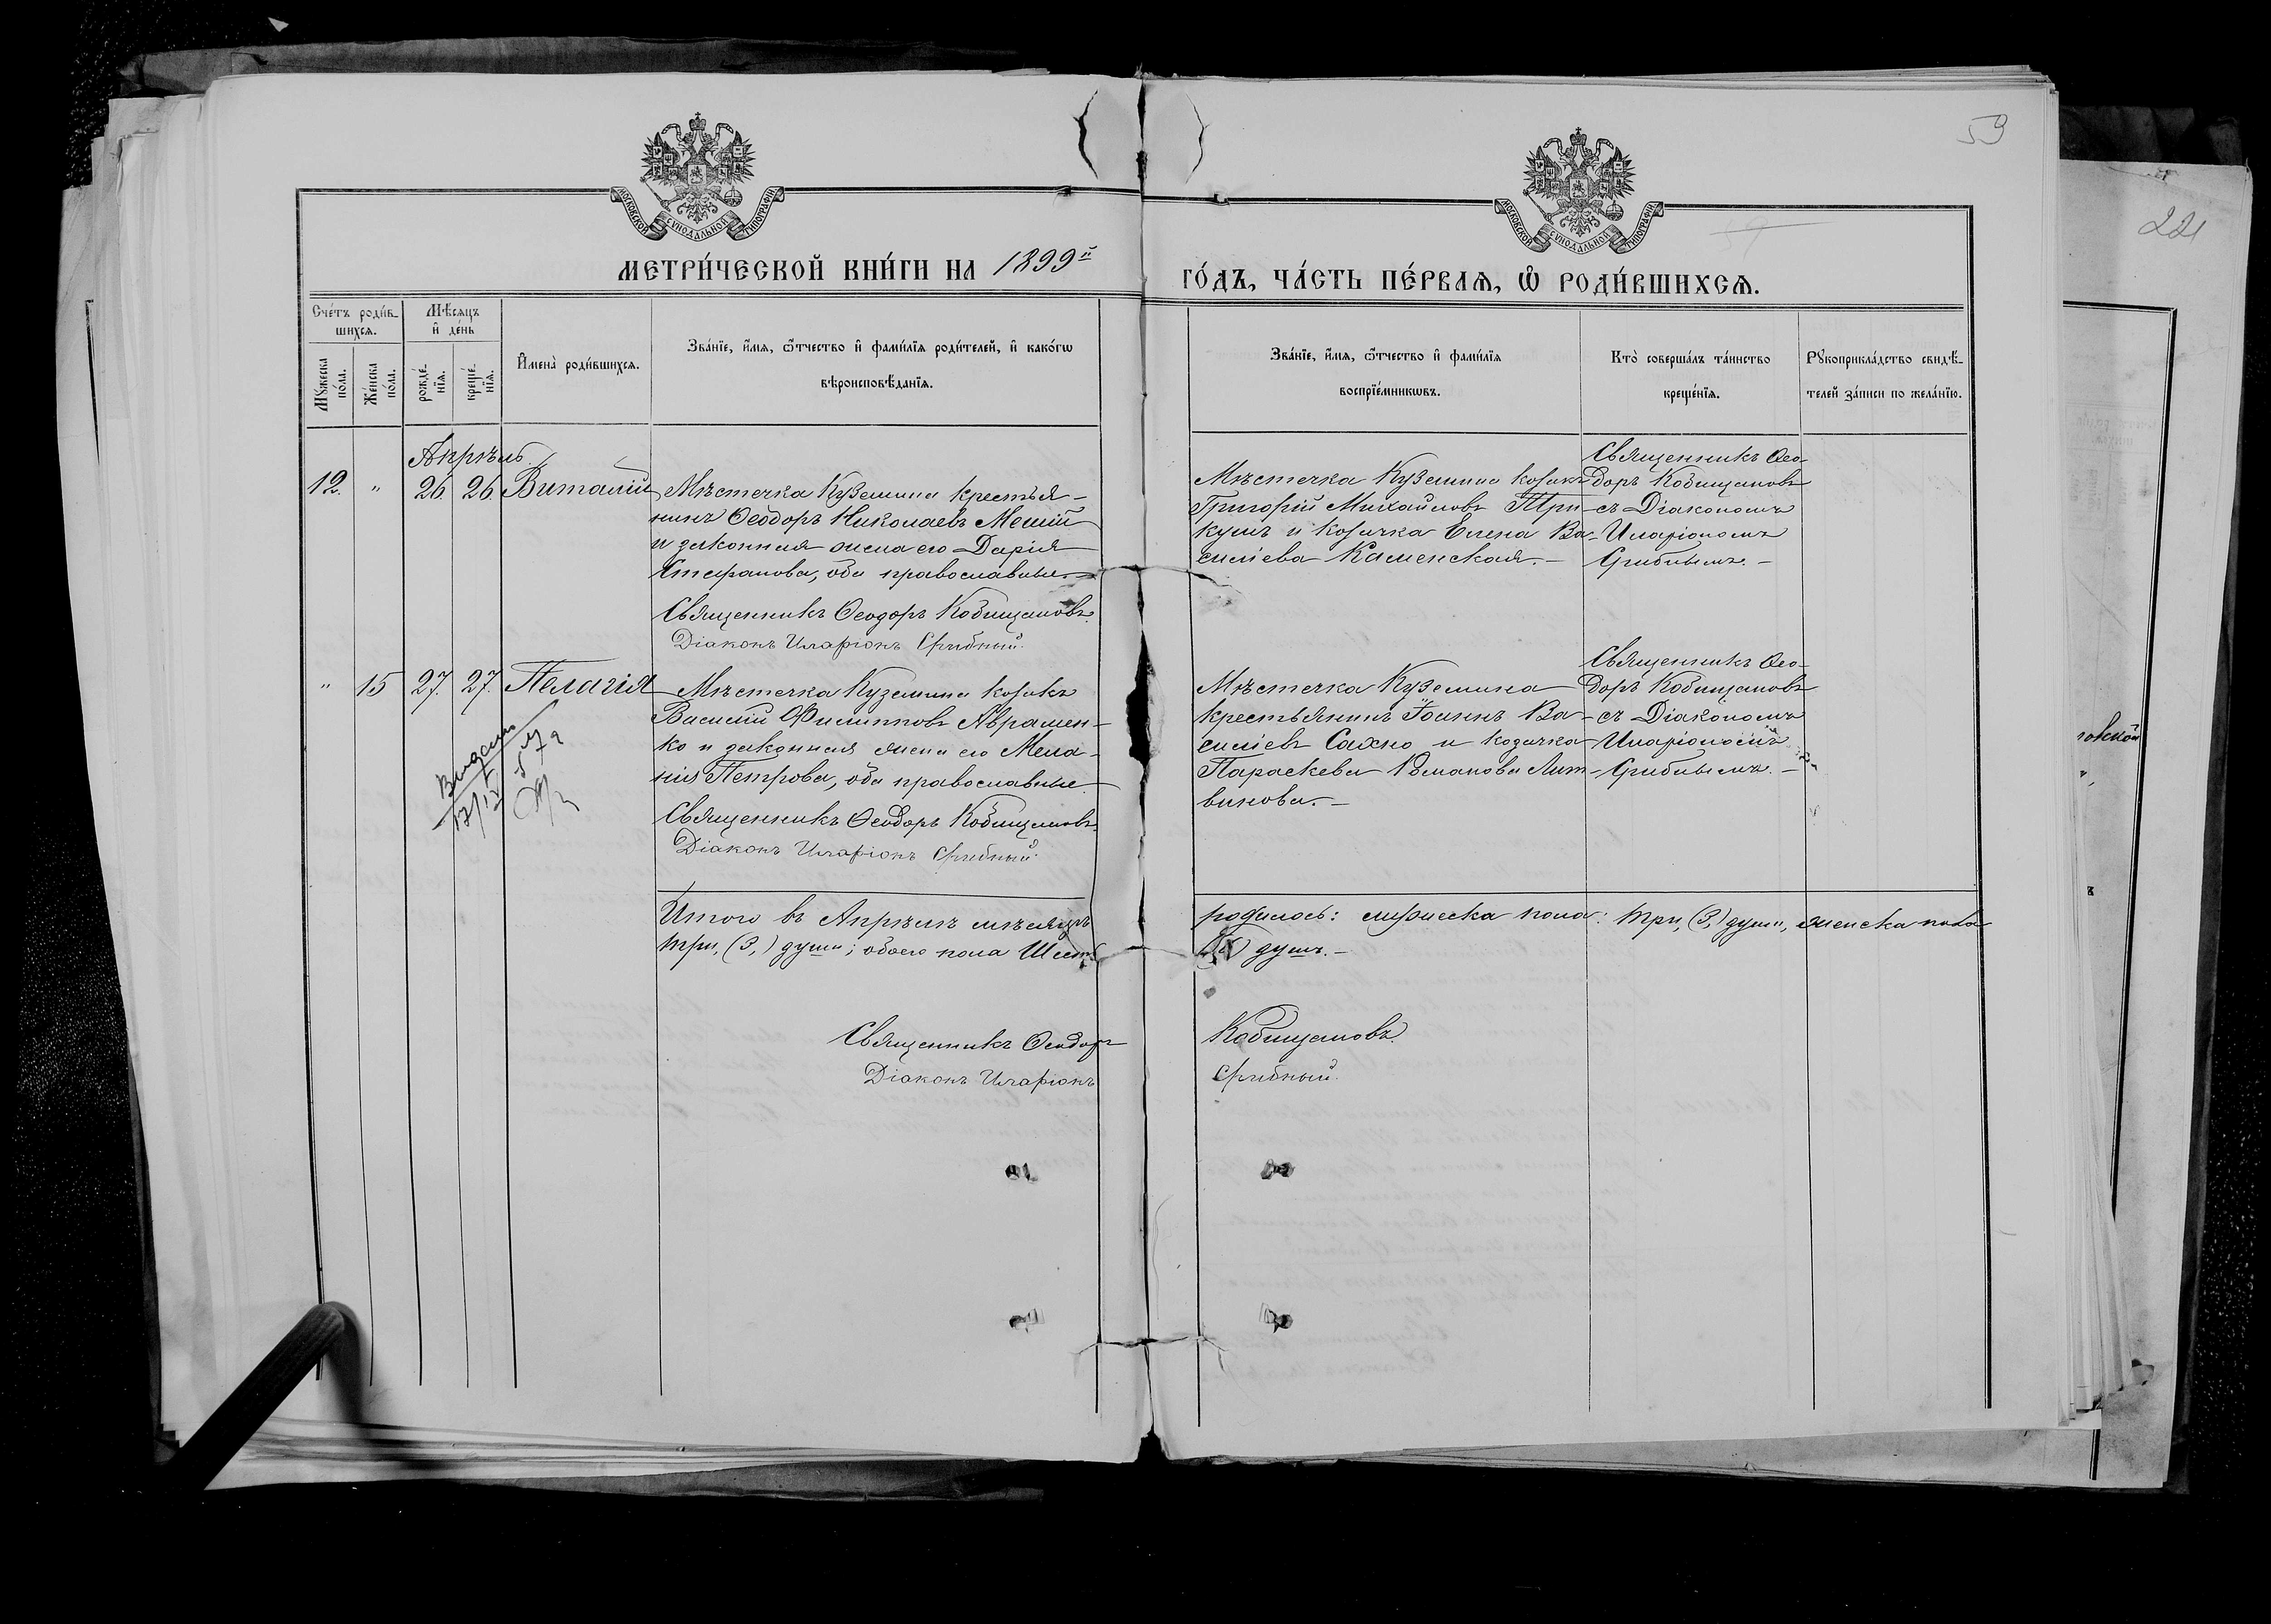 59
221
МОСКОВСКОЙ СѴНОДАЛЬНОЙ ТИПОГРАФІИ
МОСКОВСКОЙ СѴНОДАЛЬНОЙ ТИПОГРАФІИ
МЕТРИ́ЧЕСКОЙ КНИ́ГИ НА 1899й
ГО́ДЪ, ЧА́СТЬ ПЕ́РВАЯ, Ѡ҆ РОДИ́ВШИХСЯ.
Сче́тъ роди́в-
шихся.
Мѣ́сяцъ
и҆ де́нь
Мꙋ́жеска
по́ла.
Же́нска
по́ла.
рожде́-
нїя.
креще́-
нїя.
И҆мена̀ роди́вшихся.
Зва́нїе, и҆́мя, ѻ҆́тчество и҆ фами́лїя роди́телей, и҆ како́гѡ
вѣроисповѣ́данїя.
Зва́нїе, и҆́мя, ѻ҆́тчество и҆ фами́лїя
воспрїе́мникѡвъ.
Кто̀ соверша́лъ та́инство
креще́нїя.
Рꙋкоприкла́дство свидѣ́-
телей за́писи по жела́нїю.
Апрѣль.
12. " 26. 26 Виталій
Мѣстечка Куземина крестья-
нинъ Ѳеодоръ Николаевъ Меший
и законная жена его Дарія
Стефанова, оба православные.
Священникъ Ѳеодоръ Кобищановъ.
Діаконъ Иларіонъ Срибный.
Мѣстечка Куземина козакъ
Григорій Михайловъ Три-
кушъ и козачка Елена Ва-
силіева Каменская. –
Священникъ Ѳео-
доръ Кобищановъ
съ Діакономъ
Иларіономъ
Срибнымъ. –
" 15 27. 27. Пелагія
Мѣстечка Куземина козакъ
Василій Филипповъ Аврамен-
ко и законная жена его Мела-
нія Петрова, оба православные.
Священникъ Ѳеодоръ Кобищановъ.
Діаконъ Иларіонъ Срибный.
Мѣстечка Куземина
крестьянинъ Іоаннъ Ва-
силіевъ Сахно и козачка
Параскева Романова Лит-
винова. –
Священникъ Ѳео-
доръ Кобищановъ
съ Діакономъ
Иларіономъ
Срибнымъ. –
Итого въ Апрѣлѣ мѣсяцѣ родилось: мужеска пола: три, (3,) души, женска пола
три, (3,) души; обоего пола Шесть (6) душъ. –
Священникъ Ѳеодоръ Кобищановъ.
Діаконъ Иларіонъ Срибный.